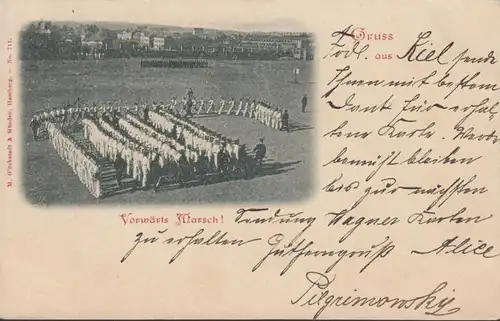 Gruss
aus Kiel sende
Ihnen mit bestem
Dank für erhal
tene Karte Werde
bemüht bleiben
bis zur nächsten
Sendung Wagner Karten
zu erhalten Gutherngruß Alice
Pilgrimowsky
Vorwärts Marsch!
M. Glückstadt & Münden, Hamburg. — No. 711.